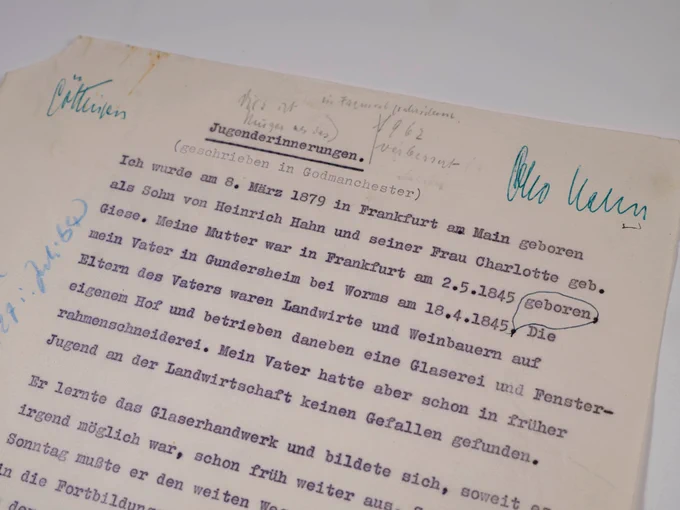 Göttingen
1962
verbessert
Otto Hahn
Jugenderinnerungen.
(geschrieben in Godmanchester)
Ich wurde am 8. März 1879 in Frankfurt am Main geboren
als Sohn von Heinrich Hahn und seiner Frau Charlotte geb.
Giese. Meine Mutter war in Frankfurt am 2.5.1845 geboren,
mein Vater in Gundersheim bei Worms am 18.4.1845. Die
Eltern des Vaters waren Landwirte und Weinbauern auf
eigenem Hof und betrieben daneben eine Glaserei und Fenster-
rahmenschneiderei. Mein Vater hatte aber schon in früher
Jugend an der Landwirtschaft keinen Gefallen gefunden.
Er lernte das Glaserhandwerk und bildete sich, soweit es
irgend möglich war, schon früh weiter aus.
Sonntag mußte er den weiten
in die Fortbildung